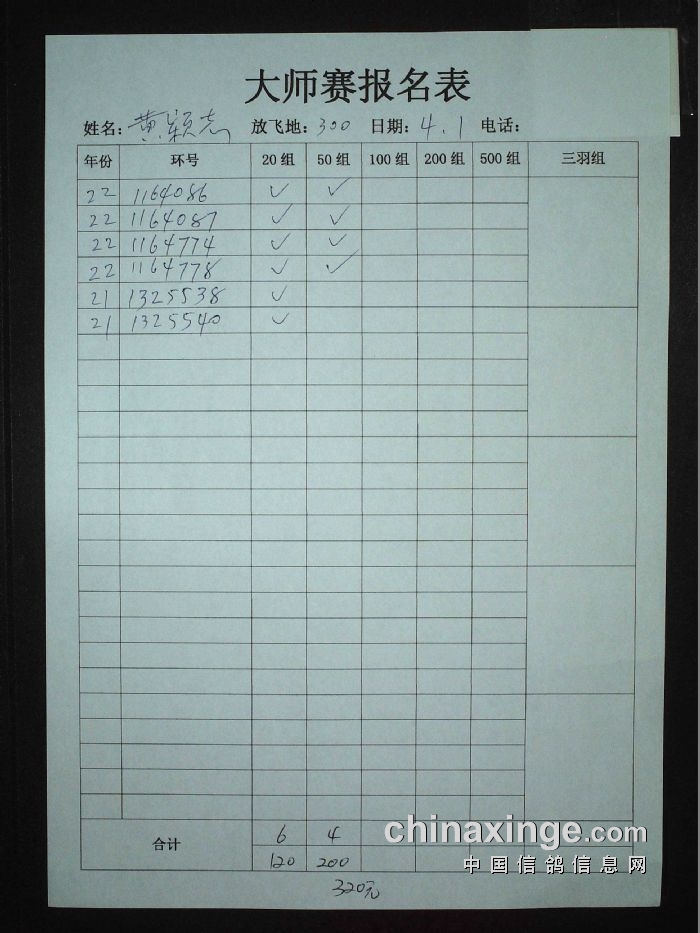 大师赛报名表
姓名：黄颖志 放飞地：300 日期：4.1 电话：
年份 环号 20组 50组 100组 200组 500组 三羽组
22 1164086 ✓ ✓
22 1164087 ✓ ✓
22 1164774 ✓ ✓
22 1164778 ✓ ✓
21 1325538 ✓
21 1325540 ✓
合计 6 4
120 200
320元
chinaxinge.com
中国信鸽信息网